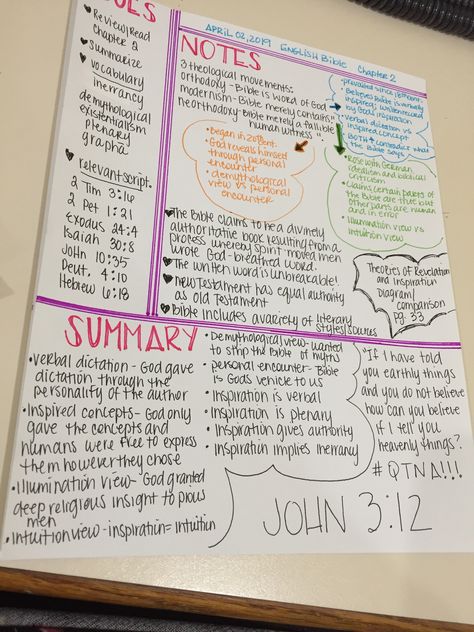 UES
• Review/Read
chapter 2
♥ summarize
♥ vocabulary
inerrancy
demythological
existentialism
plenary
grapha.
♥ relevant script.
2 Tim 3:16
2 Pet 1:21
Exodus 24:4
Isaiah 30:8
John 10:35
Deut. 4:10
Hebrew 6:19
APRIL 02, 2019 ENGLISH BIBLE Chapter 2
NOTES
3 theological movements:
orthodoxy - Bible is word of God
modernism - Bible merely contains "
neorthodoxy - bible merely a fallible
human witness "
• Began in 20th cent.
• God reveals himself
through personal
encounter
• demythological
view vs personal
encounter
• prevailed since 18th cent.
• Believes bible is verbally
inspired; written record
by God's inspiration
• verbal dictation vs
inspired concept
• BOTH contradict what
the Bible says
• Rose with German
idealism and biblical
criticism
• Claims certain parts of
the Bible are true but
other parts are human
and in error
• Illumination view vs
Intuition view
♥ The Bible claims to be a divinely
authoritative book resulting from a
process whereby spirit-moved men
wrote God-breathed word.
♥ The written word is unbreakable!
♥ New Testament has equal authority
as Old Testament
♥ Bible includes a variety of literary
styles/sources
Theories of Revelation
and inspiration
Diagram/
comparison
pg 33
SUMMARY
• verbal dictation - God gave
dictation through the
personality of the author
• Inspired concepts - God only
gave the concepts and
humans were free to express
them however they chose
• illumination view - God granted
deep religious insight to pious
men
• intuition view - inspiration = intuition
• Demythological view - wanted
to strip the Bible of myths
• personal encounter - Bible
is Gods vehicle to us
• Inspiration is verbal
• Inspiration is plenary
• Inspiration gives authority
• Inspiration implies inerrancy
"If I have told
you earthly things
and you do not believe
how can you believe
if I tell you
heavenly things?
# QTNA!!!
JOHN 3:12